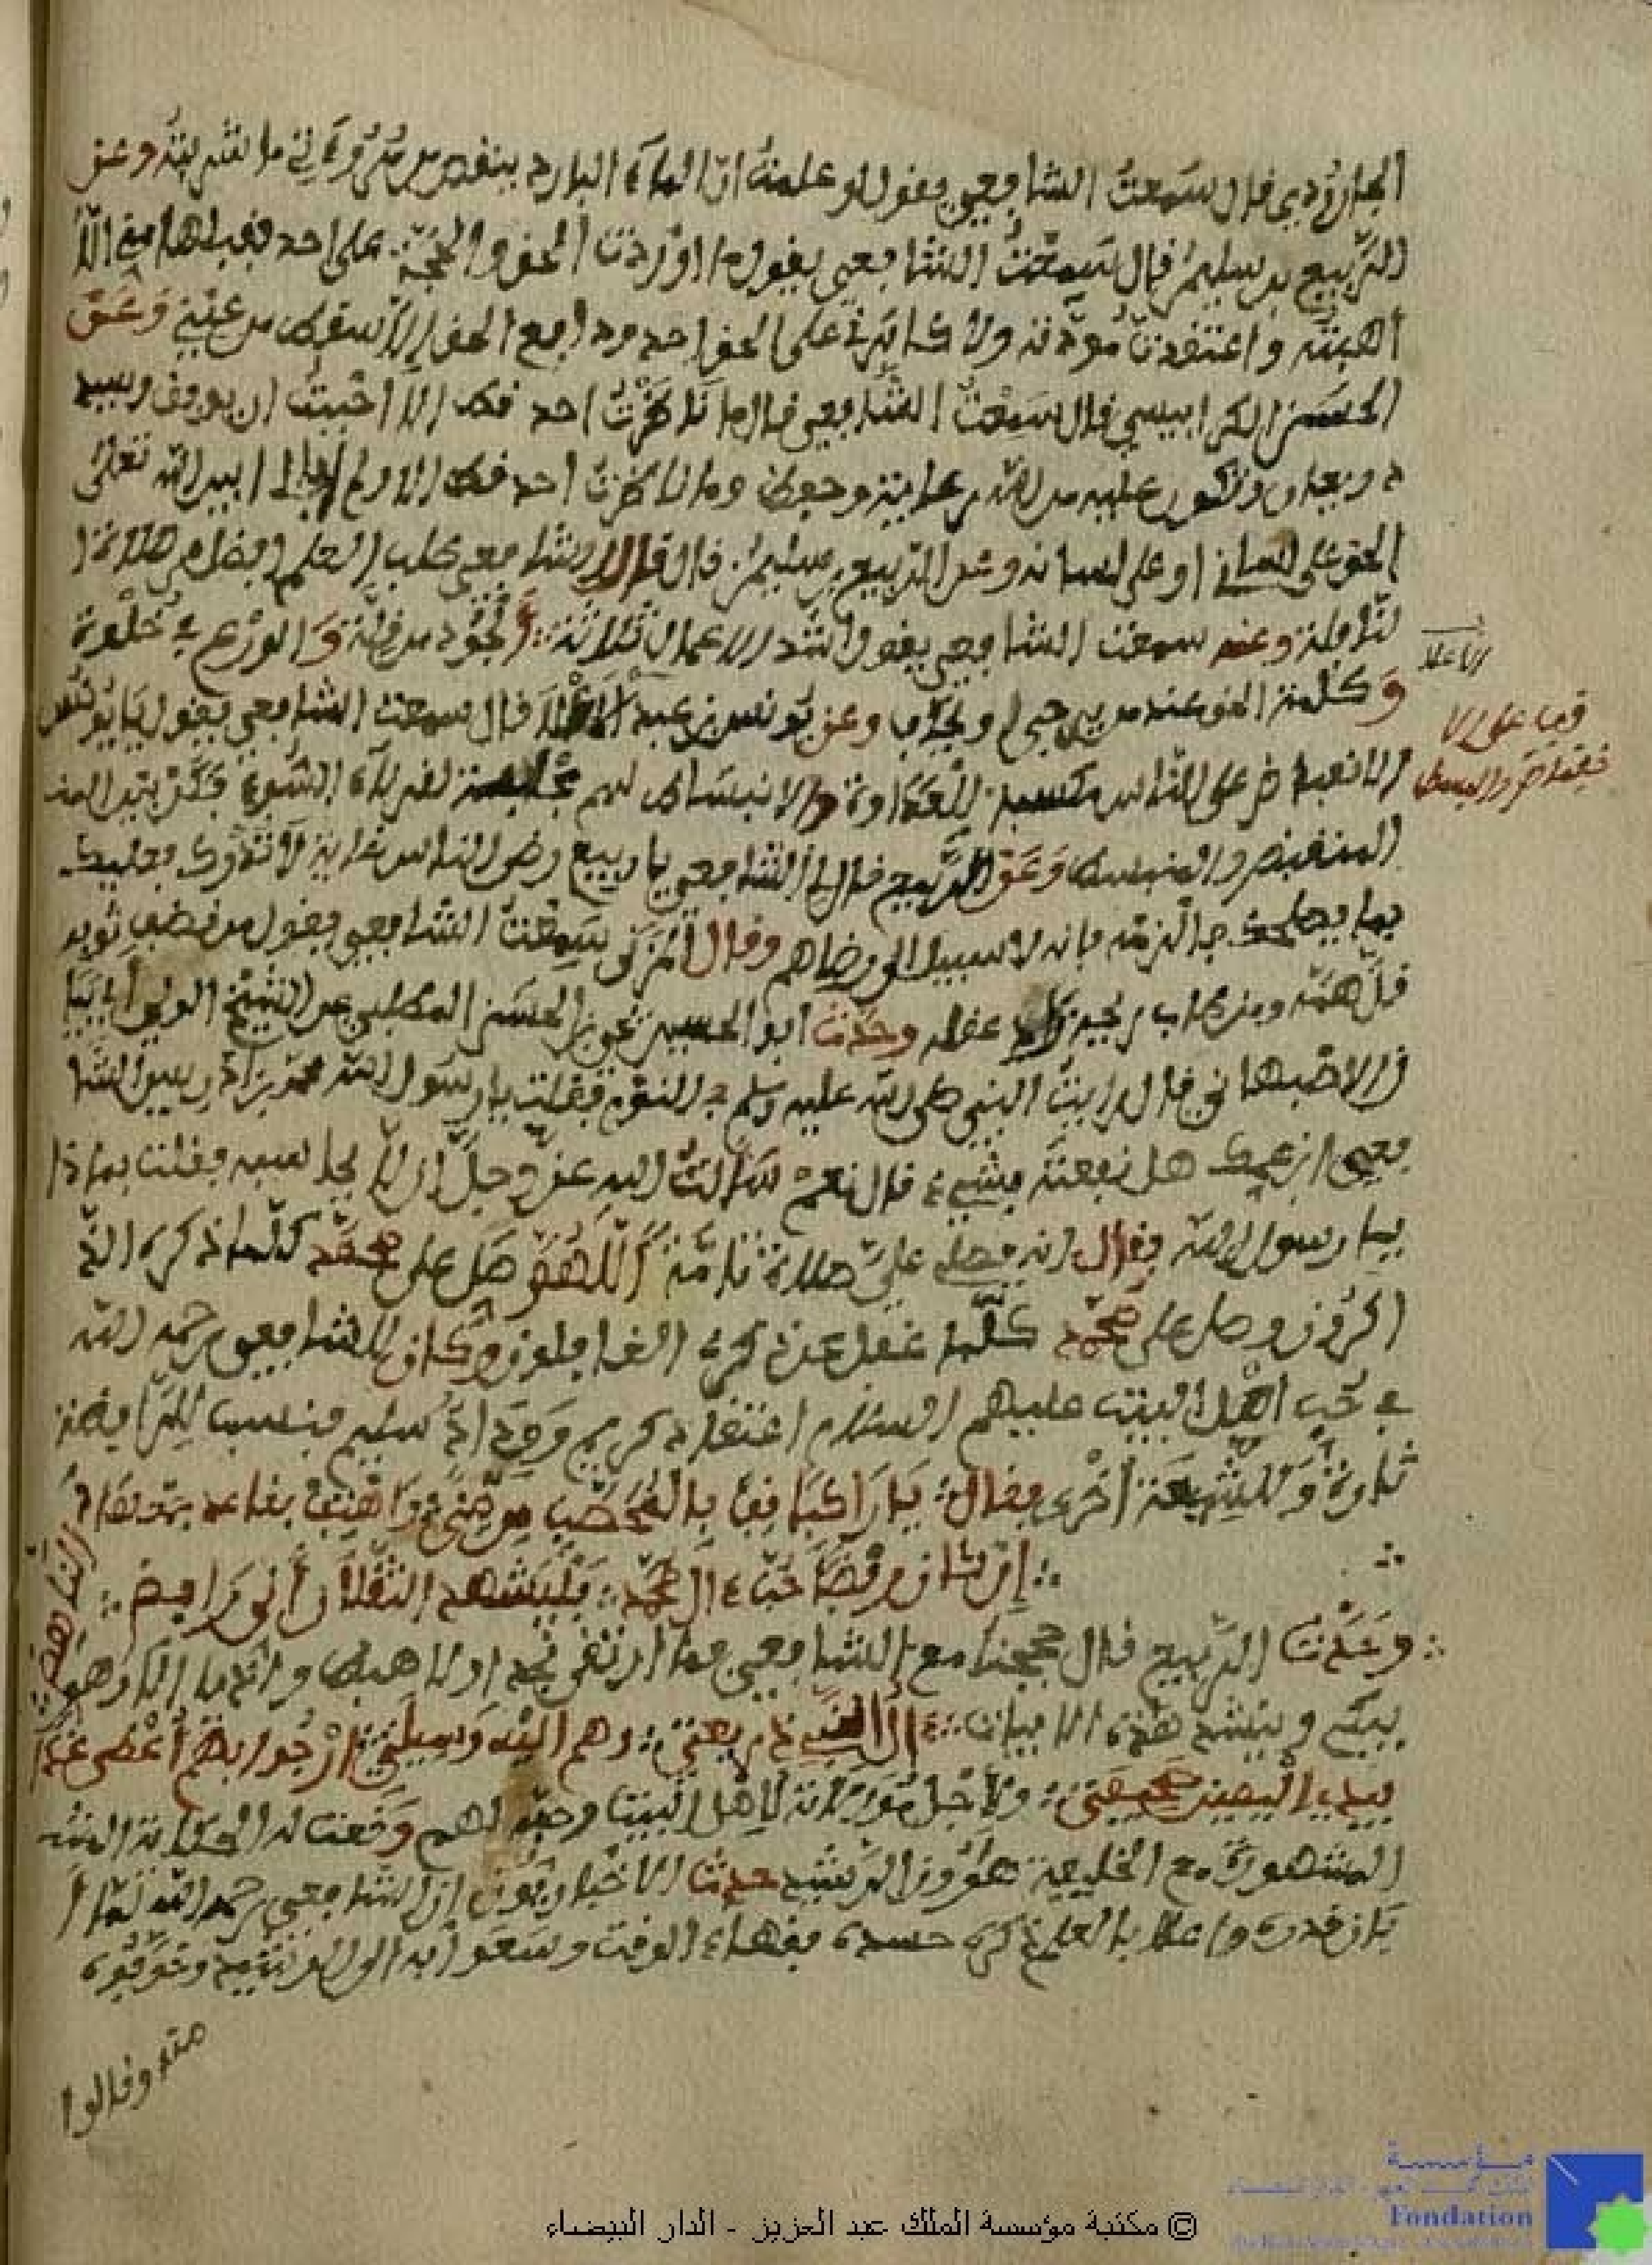 الجارودي قال سمعت الشافعي يقول لو علمت ان الماء البارد ينقص من مروءتي ما شربته وعن
الربيع بن سليمن قال سمعت الشافعي يقول ما اوردت الحق والحجة على احد فقبلها مني الا
اهبته واعتقدت مودته ولا كابرني على الحق احد ودافع الحق الا سقط من عيني وعن
الحسن الكرابيسي قال سمعت الشافعي قال ما ناظرت احد قط الا احببت ان يوفق ويسدد
ويعان وتكون عليه من الله رعاية وحفظ وما ناظرت احد قط الا ولم ابال ابين الله تعلى
الحق على لساني او على لسانه وعن الربيع بن سليمن قال قال الشافعي طلب العلم افضل من صلاة ا
لنافلة وعنه سمعت الشافعي يقول اشد الاعمال ثلاثة الجود من قلة والورع في خلوة
وكلمة الحق عند من يرجى او يخاف وعن يونس بن عبد الاعلا قال سمعت الشافعي يقول يا يونس
الانقباض على الناس مكسبة للعداوة والانبساط لهم مجلبة لقرناء السوء فكن بين المنـ
المنقبض والمنبسط وعن الربيع قال لي الشافعي يا ربيع رضى الناس غاية لا تدرك فعليك
بما يصلحك فالزمه فانه لا سبيل الى رضاهم وقال المزني سمعت الشافعي يقول من نضف ثوبه
قل همه ومن طاب ريحه زاد عقله وحدث ابو الحسين بن الحسن المطلبي عن الشيخ الولي ابن بيا
ن الاصبهاني قال رايت النبي صلى الله عليه وسلم في النوم فقلت يا رسول الله محمد بن ادريس الشا
فعي ابن عمك هل نفعته بشيء قال نعم سالت الله عز وجل ان لا يحاسبه فقلت بماذا
يا رسول الله فقال انه يصلي علي صلاة تامة اللهم صل على محمد كلما ذكره الذ
اكرون وصل على محمد كلما غفل عن ذكره الغافلون وكان للشافعي رحمه الله
في حب اهل البيت عليهم السلام اعتقاد كريم ووداد سليم فنسب للرافضة
تارة وللشيعة اخرى فقال يا راكبا قف بالمحصب من منى واهتف بقاعد خيفها و
الناهض
ان كان رفضا حب ءال محمد فليشهد الثقلان اني رافض
وحدث الربيع قال حججنا مع الشافعي فما ارتقى نجد او لا هبط واديا الا وهو
يبكي وينشد هذه الابيات ءال النبي ذريعتي وهم اليه وسيلتي ارجو بهم اعطى غدا
بيدي اليمين صحيفتي ولاجل موالاته لاهل البيت وحبه لهم وقعت له الحكاية المشـ
المشهورة مع الخليفة هرون الرشيد حدث الاخباريون ان الشافعي رحمه الله لما ا
بان قدره واعلا بالعلم ذكره حسده فقهاء الوقت وسعوا به الى الرشيد وخوفوه
منه وقالوا
الاعلا
© مكتبة مؤسسة الملك عبد العزيز - الدار البيضاء
مؤسسة
Fondation